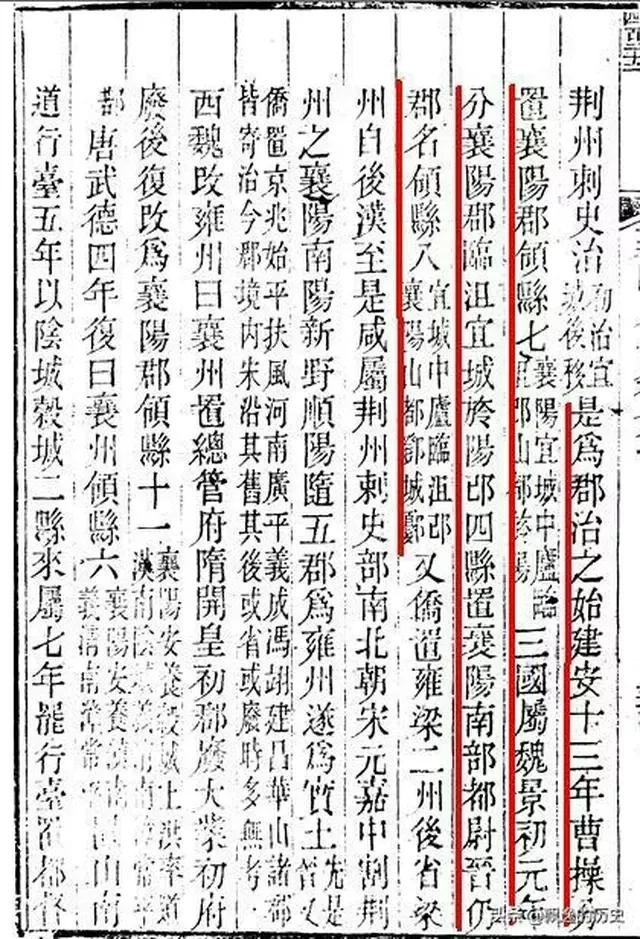 荆州刺史治初治宜城後移是爲郡治之始建安十三年曹操
置襄陽郡領縣七襄陽宜城中盧臨沮郡山都於陽三國屬魏景初元年
分襄陽郡臨沮宜城於陽邔四縣置襄陽南部都尉晉仍
郡名領縣八宜城中廬臨沮邔襄陽山都鄧城鄾又僑置雍梁二州後省梁
州自後漢至是咸屬荆州剌史部南北朝宋元嘉中割荆
州之襄陽南陽新野順陽隨五郡爲雍州遂爲實土先是晉又
僑置京兆始平扶風河南廣平義成馮翊建昌華山諸郡
皆寄治今郡境内宋沿其舊其後或省或廢時多無考
西魏改雍州曰襄州置總管府隋開皇初郡廢大業初府
廢後復改爲襄陽郡領縣十一襄陽安養穀城上洪率道漢南陰城義清南漳常平
鄀唐武德四年復曰襄州領縣六襄陽安養漢南義清南漳常平
道行臺五年以陰城穀城二縣來屬七年罷行臺置都督